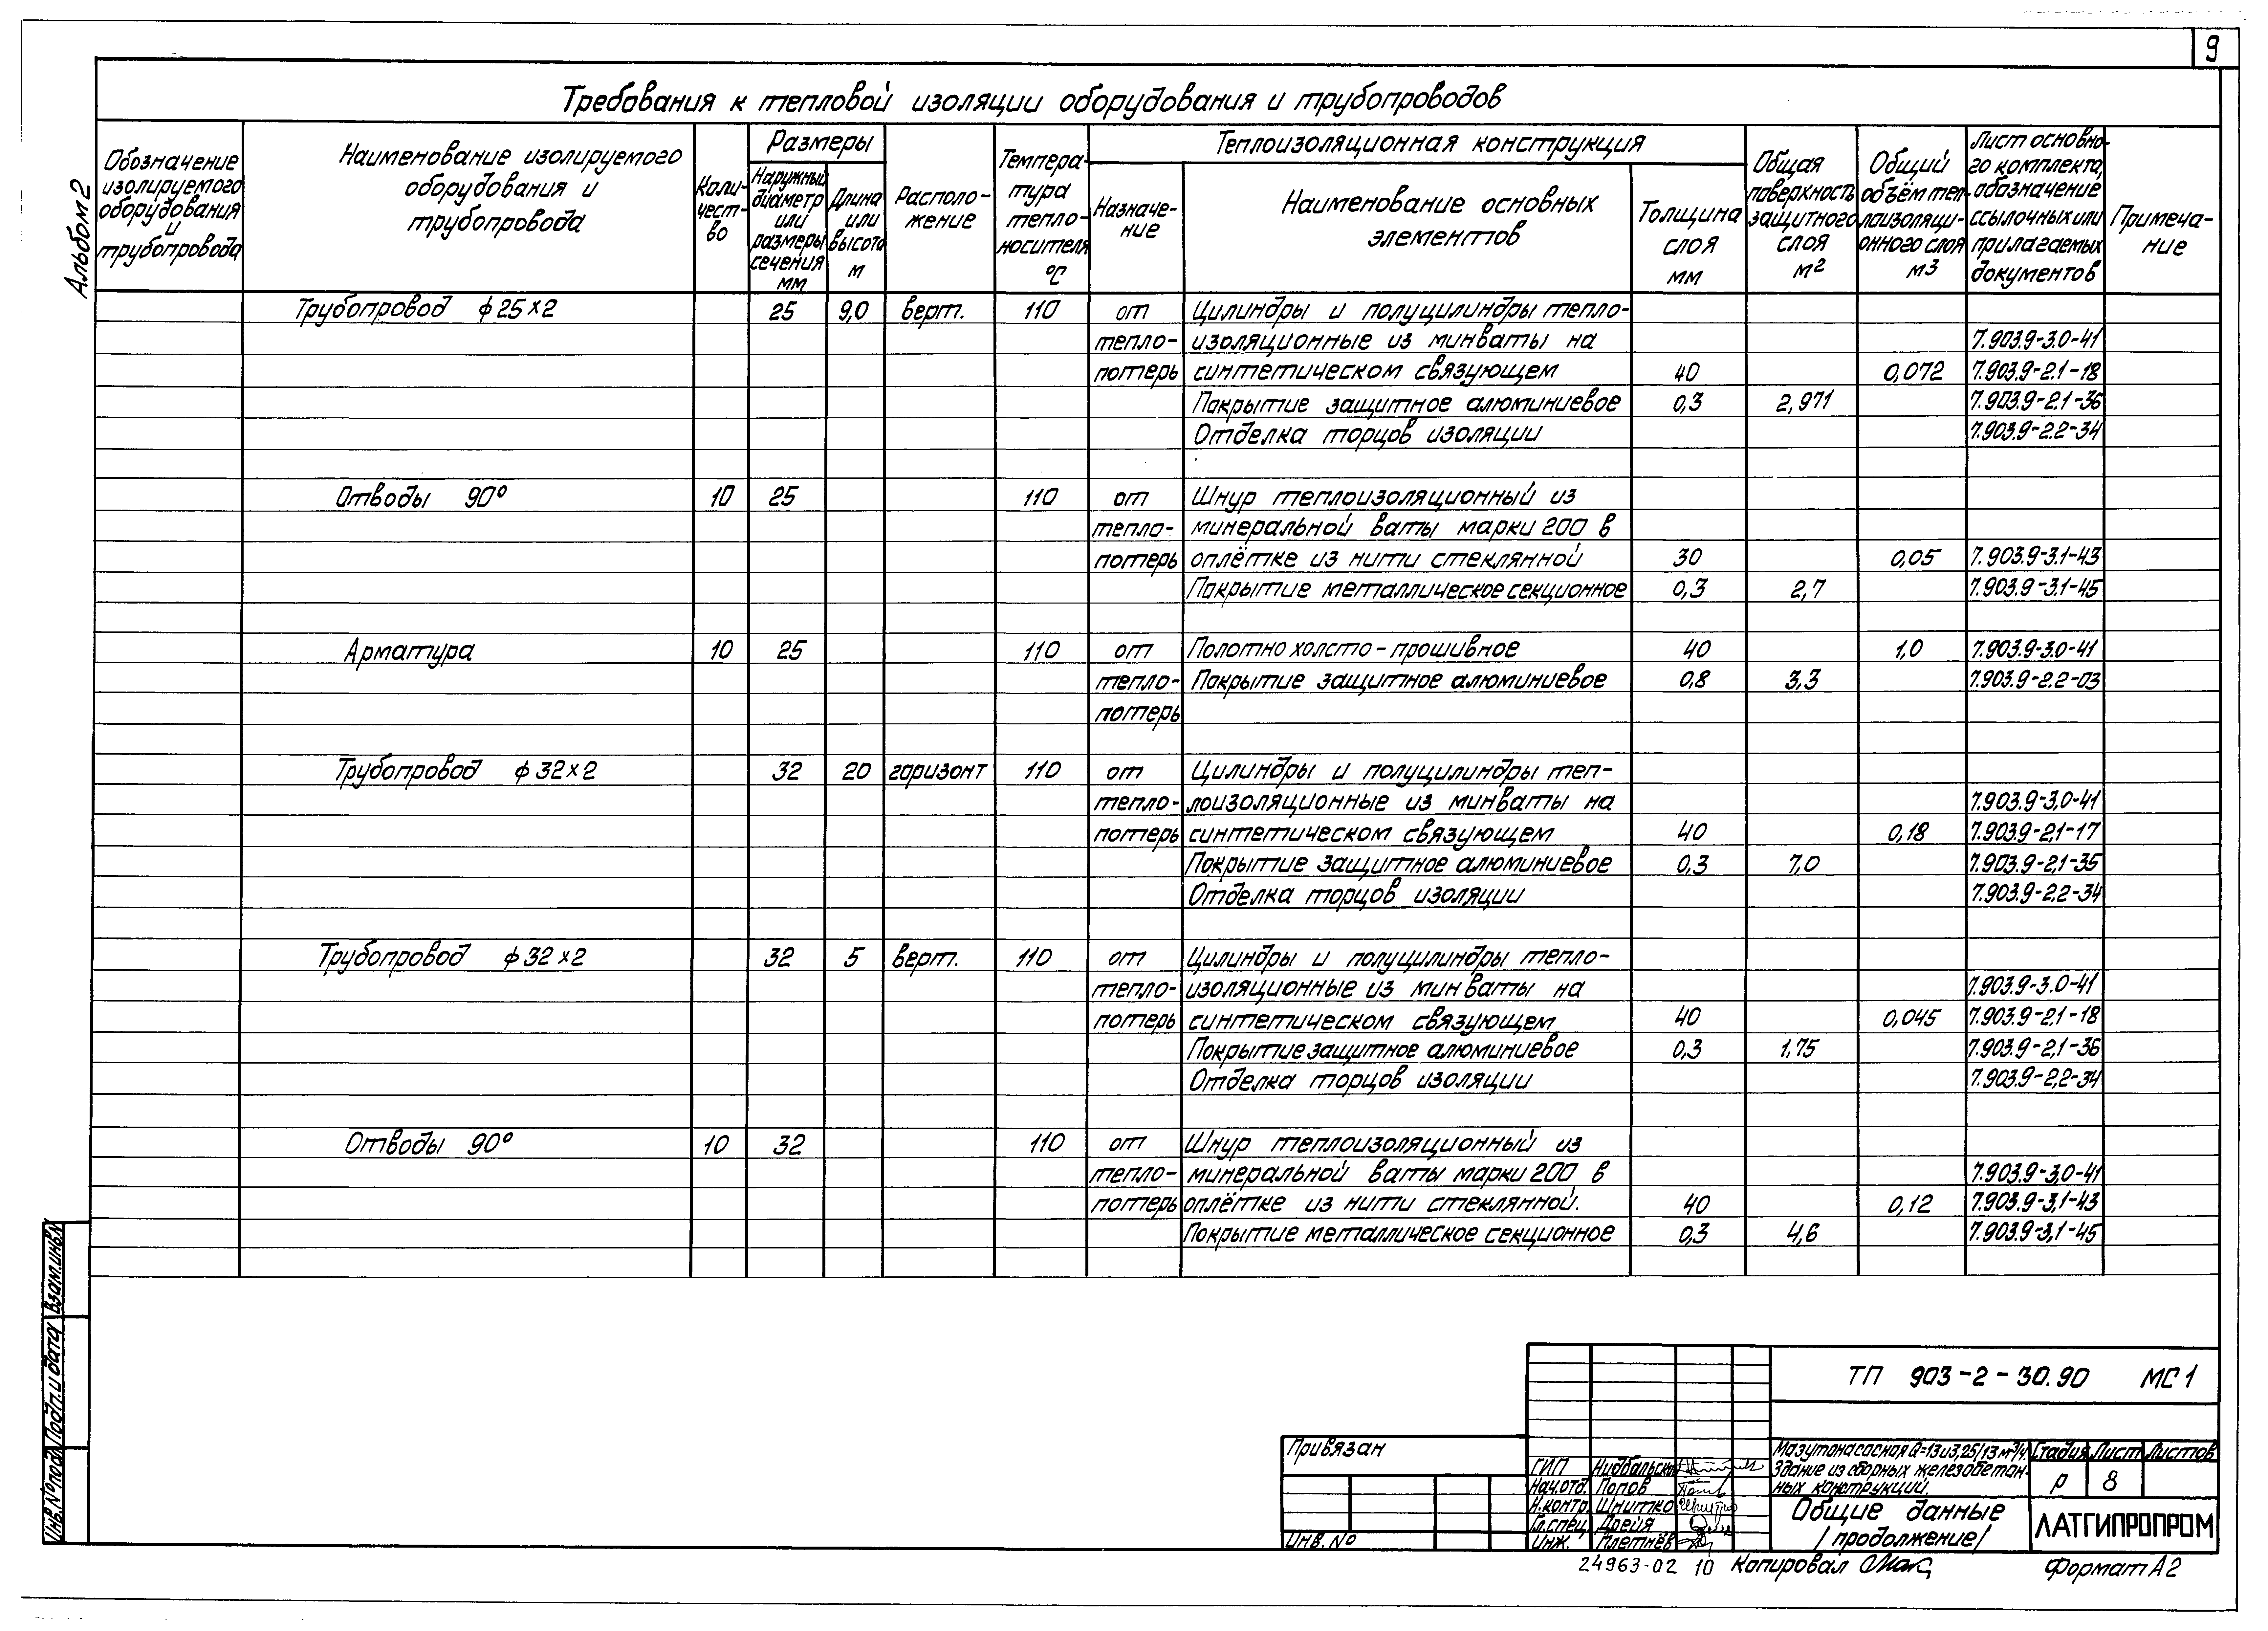 9
Альбом 2
Требования к тепловой изоляции оборудования и трубопроводов
Обозначение изолируемого оборудования и трубопровода
Наименование изолируемого оборудования и трубопровода
Коли-чест-во
Размеры
Наружный диаметр или размеры сечения мм
Длина или высота м
Располо-жение
Темпера-тура тепло-носителя °С
Теплоизоляционная конструкция
Назначе-ние
Наименование основных элементов
Толщина слоя мм
Общая поверхность защитного слоя м2
Общий объём теп-лоизоляци-онного слоя м3
Лист основно-го комплекта, обозначение ссылочных или прилагаемых документов
Примеча-ние
Трубопровод ф25×2 25 9,0 верт. 110 от Цилиндры и полуцилиндры тепло-
тепло- изоляционные из минваты на 7.903.9-3.0-41
потерь синтетическом связующем 40 0,072 7.903.9-2.1-18
Покрытие защитное алюминиевое 0,3 2,971 7.903.9-2.1-36
Отделка торцов изоляции 7.903.9-2.2-34
Отводы 90° 10 25 110 от Шнур теплоизоляционный из
тепло- минеральной ваты марки 200 в
потерь оплётке из нити стеклянной 30 0,05 7.903.9-3.1-43
Покрытие металлическое секционное 0,3 2,7 7.903.9-3.1-45
Арматура 10 25 110 от Полотно холсто-прошивное 40 1,0 7.903.9-3.0-41
тепло- Покрытие защитное алюминиевое 0,8 3,3 7.903.9-2.2-03
потерь
Трубопровод ф32×2 32 20 горизонт 110 от Цилиндры и полуцилиндры теп-
тепло- лоизоляционные из минваты на 7.903.9-3,0-41
потерь синтетическом связующем 40 0,18 7.903.9-2,1-17
Покрытие защитное алюминиевое 0,3 7,0 7.903.9-2,1-35
Отделка торцов изоляции 7.903.9-2,2-34
Трубопровод ф32×2 32 5 верт. 110 от Цилиндры и полуцилиндры тепло-
тепло- изоляционные из минваты на 7.903.9-3.0-41
потерь синтетическом связующем 40 0,045 7.903.9-2,1-18
Покрытие защитное алюминиевое 0,3 1,75 7.903.9-2,1-36
Отделка торцов изоляции 7.903.9-2,2-34
Отводы 90° 10 32 110 от Шнур теплоизоляционный из
тепло- минеральной ваты марки 200 в 7.903.9-3,0-41
потерь оплётке из нити стеклянной. 40 0,12 7.903.9-3,1-43
Покрытие металлическое секционное 0,3 4,6 7.903.9-3,1-45
Взам.инв.N
Подп.и дата
Инв.N°подл.
ТП 903-2-30.90 МС1
Привязан
Инв.N°
ГИП
Нач.отд. Попов
Н.контр. Шнитко
Гл.спец. Дрейя
Инж. Плетнёв
Мазутонасосная Q=13и3,25/13м³/ч.
Здание из сборных железобетон-
ных конструкций.
Стадия Лист Листов
Р 8
Общие данные
/продолжение/
ЛАТГИПРОПРОМ
24963-02 10 Копировал
Формат А2